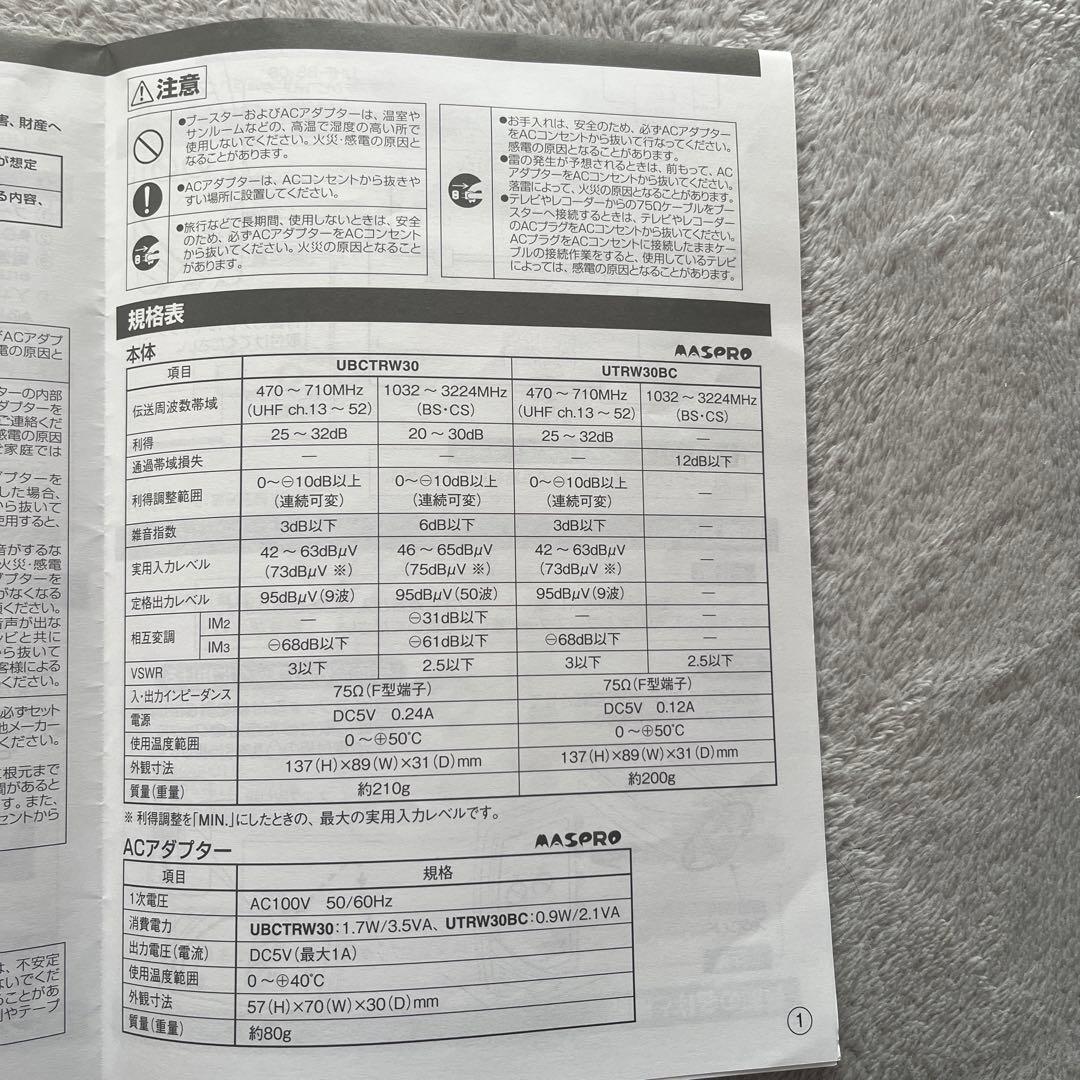 害、財産へ
が想定
る内容、
ずACアダプ
電の原因と
ターの内部
アダプターを
ご連絡くだ
感電の原因
ご家庭では
プターを
した場合、
から抜いて
使用すると、
音がするな
火災・感電
プターを
がなくなる
頂ください。
音声が出な
レビと共に
ら抜いて
客様による
ください。
必ずセット
他メーカー
ください。
根元まで
間があると
す。また、
セントから
は、不安定
ないでくだ
ることがあ
りやテープ
注意
●ブースターおよびACアダプターは、温室や
サンルームなどの、高温で湿度の高い所で
使用しないでください。火災・感電の原因と
なることがあります。
●ACアダプターは、ACコンセントから抜きや
すい場所に設置してください。
●旅行などで長期間、使用しないときは、安全
のため、必ずACアダプターをACコンセント
から抜いてください。火災の原因となること
があります。
●お手入れは、安全のため、必ずACアダプター
をACコンセントから抜いて行なってください。
感電の原因となることがあります。
●雷の発生が予想されるときは、前もって、AC
アダプターをACコンセントから抜いてください。
落雷によって、火災の原因となることがあります。
●テレビやレコーダーからの75Ωケーブルをブー
スターへ接続するときは、テレビやレコーダー
のACプラグをACコンセントから抜いてください。
ACプラグをACコンセントに接続したままケー
ブルの接続作業をすると、使用しているテレビ
によっては、感電の原因となることがあります。
規格表
本体 MASPRO
項目 UBCTRW30 UTRW30BC
伝送周波数帯域 470～710MHz 1032～3224MHz 470～710MHz 1032～3224MHz
(UHF ch.13～52) (BS・CS) (UHF ch.13～52) (BS・CS)
利得 25～32dB 20～30dB 25～32dB —
通過帯域損失 — — — 12dB以下
利得調整範囲 0～⊖10dB以上 0～⊖10dB以上 0～⊖10dB以上 —
(連続可変) (連続可変) (連続可変)
雑音指数 3dB以下 6dB以下 3dB以下 —
実用入力レベル 42～63dBμV 46～65dBμV 42～63dBμV —
(73dBμV ※) (75dBμV ※) (73dBμV ※)
定格出力レベル 95dBμV(9波) 95dBμV(50波) 95dBμV(9波) —
相互変調 IM2 — ⊖31dB以下 — —
IM3 ⊖68dB以下 ⊖61dB以下 ⊖68dB以下 —
VSWR 3以下 2.5以下 3以下 2.5以下
入・出力インピーダンス 75Ω(F型端子) 75Ω(F型端子)
電源 DC5V 0.24A DC5V 0.12A
使用温度範囲 0～⊕50℃ 0～⊕50℃
外観寸法 137(H)×89(W)×31(D)mm 137(H)×89(W)×31(D)mm
質量(重量) 約210g 約200g
※ 利得調整を「MIN.」にしたときの、最大の実用入力レベルです。
ACアダプター MASPRO
項目 規格
1次電圧 AC100V 50/60Hz
消費電力 UBCTRW30:1.7W/3.5VA、UTRW30BC:0.9W/2.1VA
出力電圧(電流) DC5V(最大1A)
使用温度範囲 0～⊕40℃
外観寸法 57(H)×70(W)×30(D)mm
質量(重量) 約80g
①